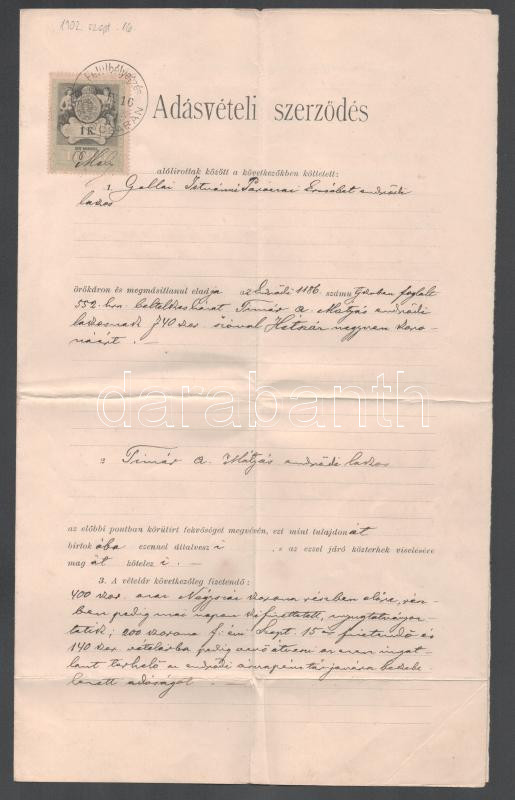 1902. szept. 16
16
1 K
Adásvételi szerződés
alólirottak között a következőkben köttetett:
1. Gallai Istvánné Erzsébet endrődi
lakos
örökáron és megmásitlanul eladja az endrődi 1186. számu foglalt
552. hrsz. Timár a. Mátyás endrődi
lakosnak 740 kor. szóval Hétszáz negyven koro-
náért. —
darabanth
2 Timár a. Mátyás endrődi lakos
az előbbi pontban körülirt fekvőséget megvévén, ezt mint tulajdonát
birtokába ezennel általveszi s az ezzel járó közterhek viselésére
magát kötelezi. —
3. A vételár következőleg fizetendő:
400 kor. azaz Négyszáz korona részben előre, rész-
ben pedig mai napon kifizettetett, nyugtatványoz-
tatik; 200 korona f. évi Szept. 15-én fizetendő és
140 kor. vételárba pedig átveszi az ezen ingat-
lant terhelő az endrődi javára bekebe-
lezett adóságot.